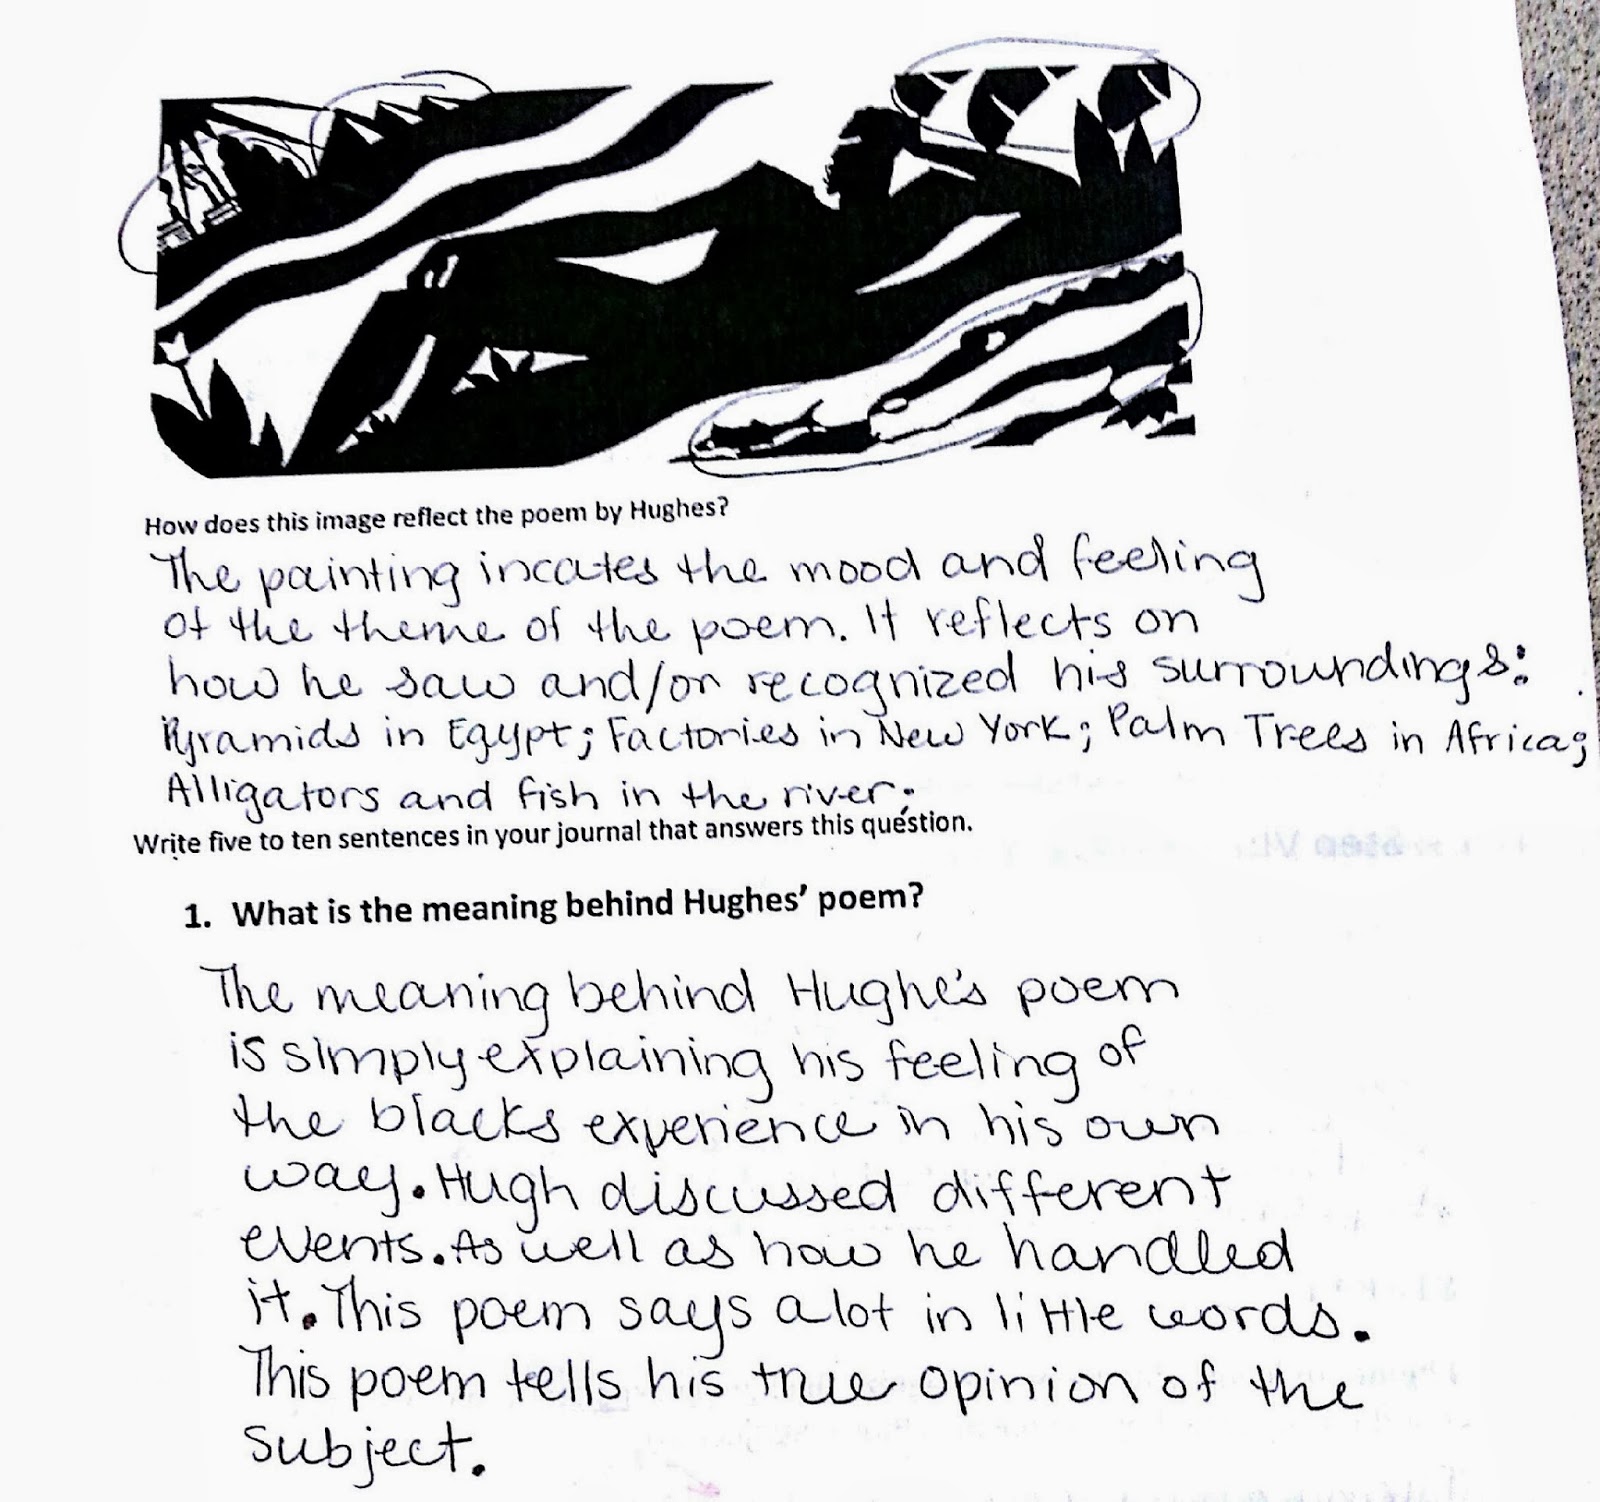 How does this image reflect the poem by Hughes?
The painting incates the mood and feeling
of the theme of the poem. It reflects on
how he saw and/or recognized his surroundings:
Pyramids in Egypt; Factories in New York; Palm Trees in Africa;
Alligators and fish in the river;
Write five to ten sentences in your journal that answers this question.
1. What is the meaning behind Hughes' poem?
The meaning behind Hughe's poem
is simply explaining his feeling of
the blacks experience in his own
way. Hugh discussed different
events. As well as how he handled
it. This poem says a lot in little words.
This poem tells his true opinion of the
subject.